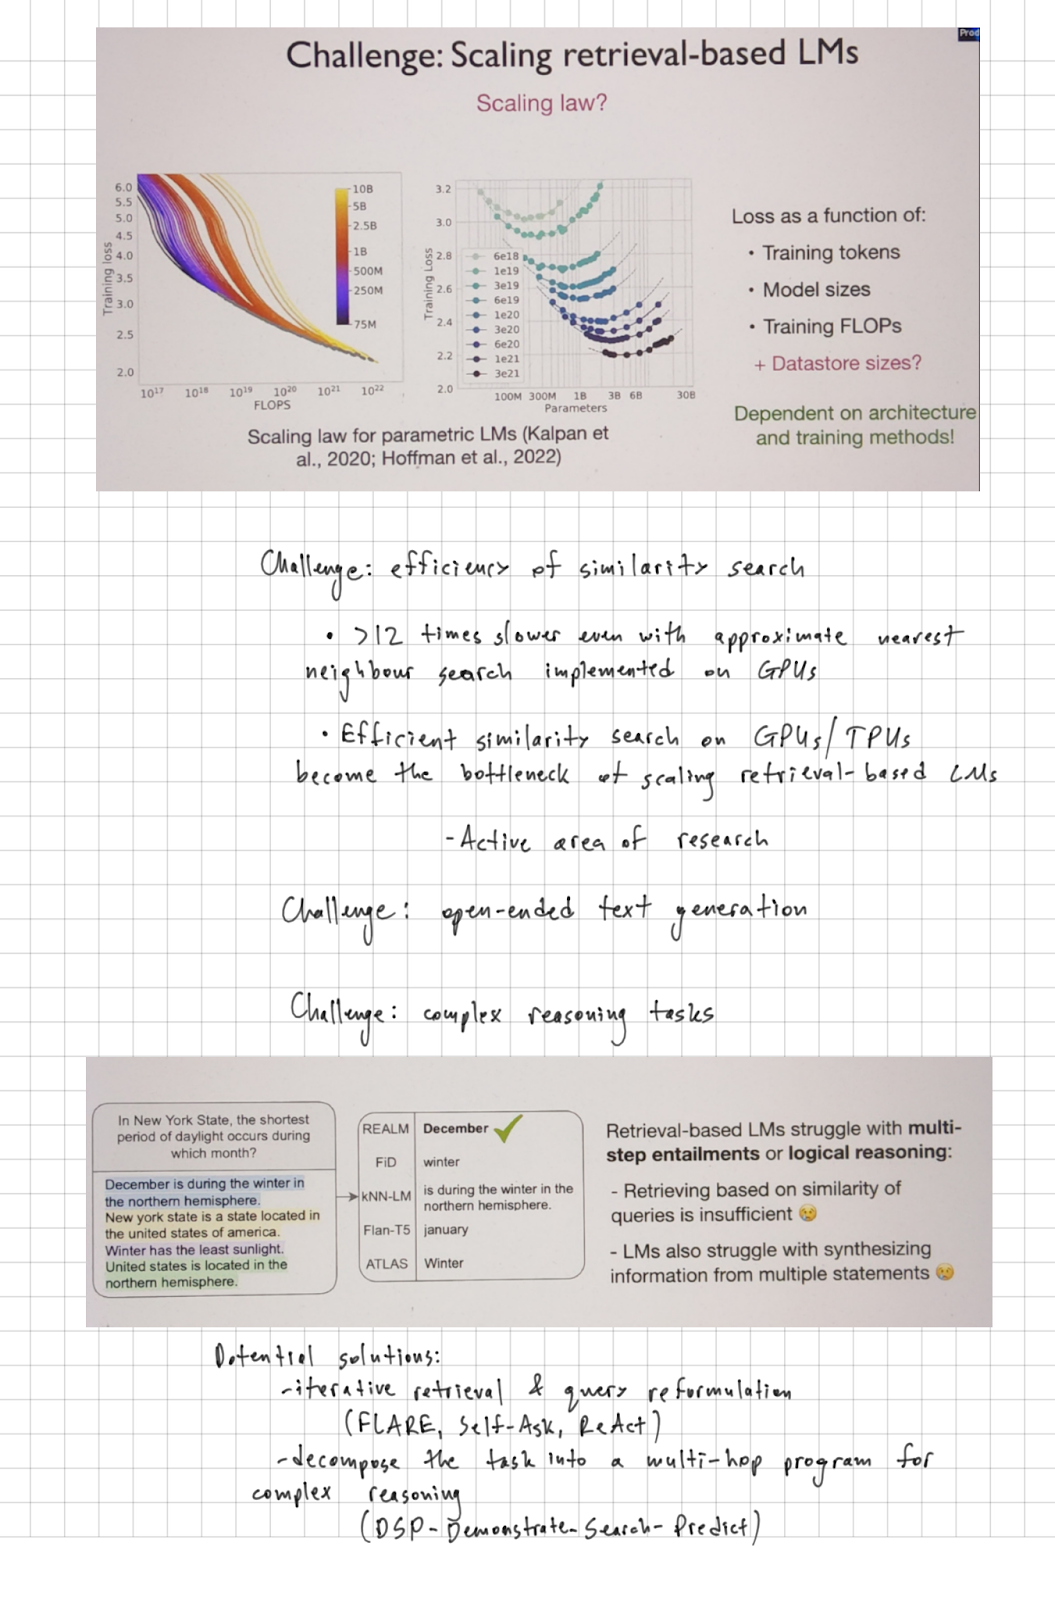 Prod
Challenge: Scaling retrieval-based LMs
Scaling law?
Training loss
6.0
5.5
5.0
4.5
4.0
3.5
3.0
2.5
2.0
10B
5B
2.5B
1B
500M
250M
75M
10¹⁷ 10¹⁸ 10¹⁹ 10²⁰ 10²¹ 10²²
FLOPS
Training Loss
3.2
3.0
2.8
2.6
2.4
2.2
2.0
6e18
1e19
3e19
6e19
1e20
3e20
6e20
1e21
3e21
100M 300M 1B 3B 6B 30B
Parameters
Scaling law for parametric LMs (Kalpan et
al., 2020; Hoffman et al., 2022)
Loss as a function of:
• Training tokens
• Model sizes
• Training FLOPs
+ Datastore sizes?
Dependent on architecture
and training methods!
Challenge: efficiency of similarity search
• >12 times slower even with approximate nearest
neighbour search implemented on GPUs
• Efficient similarity search on GPUs/TPUs
become the bottleneck of scaling retrieval-based LMs
- Active area of research
Challenge: open-ended text generation
Challenge: complex reasoning tasks
In New York State, the shortest
period of daylight occurs during
which month?
December is during the winter in
the northern hemisphere.
New york state is a state located in
the united states of america.
Winter has the least sunlight.
United states is located in the
northern hemisphere.
REALM December ✓
FiD winter
kNN-LM is during the winter in the
northern hemisphere.
Flan-T5 january
ATLAS Winter
Retrieval-based LMs struggle with multi-
step entailments or logical reasoning:
- Retrieving based on similarity of
queries is insufficient 😢
- LMs also struggle with synthesizing
information from multiple statements 😢
Potential solutions:
- iterative retrieval & query reformulation
(FLARE, Self-Ask, ReAct)
- decompose the task into a multi-hop program for
complex reasoning
(DSP - Demonstrate - Search - Predict)